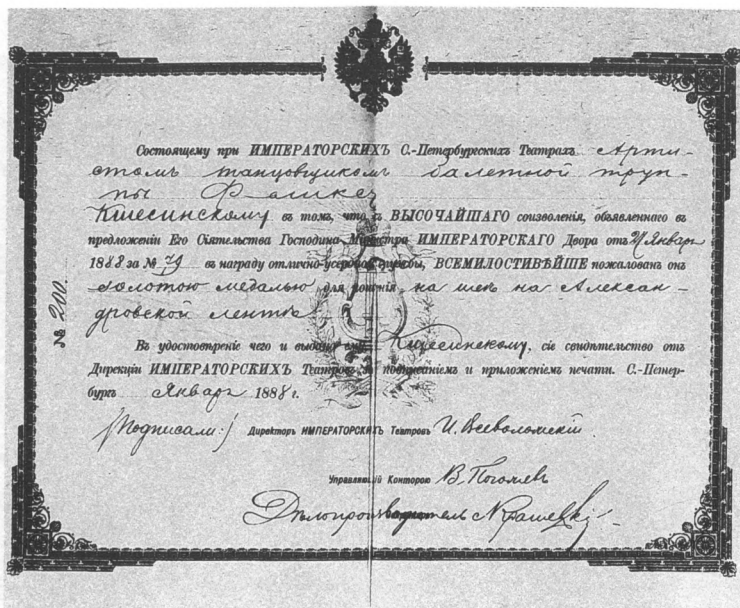 Состоящему при ИМПЕРАТОРСКИХЪ С.-Петербургскихъ Театрахъ Арти-
стомъ танцовщикомъ балетной труп-
пы Феликсу
Кшесинскому въ томъ, что съ ВЫСОЧАЙШАГО соизволенія, объявленнаго въ
предложеніи Его Сіятельства Господина Министра ИМПЕРАТОРСКАГО Двора отъ Январ
1888 за № 79 въ награду отлично-усердной службы, ВСЕМИЛОСТИВѢЙШЕ пожалованъ онъ
золотою медалью для ношенія на шеѣ на Алексан-
дровской лентѣ
№ 200.
Въ удостовѣреніе чего и выдано ему Кшесинскому, сіе свидѣтельство отъ
Дирекціи ИМПЕРАТОРСКИХЪ Театровъ за подписаніемъ и приложеніемъ печати. С.-Петер-
бургъ Января 1888 г.
/Подписали:/ Директоръ ИМПЕРАТОРСКИХЪ Театровъ И. Всеволожскій
Управляющій Конторою В. Погожевъ
Дѣлопроизводитель